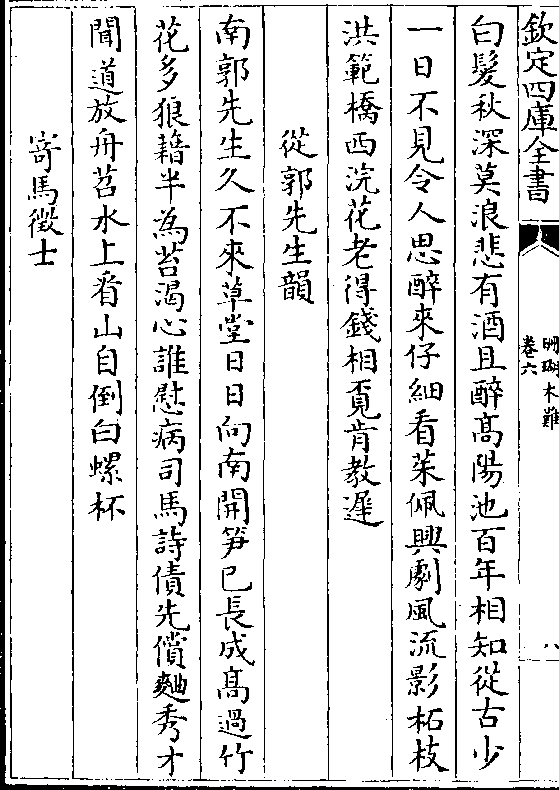 欽定四庫全書
珊瑚木難
卷六
八
白髮秋深莫浪悲有酒且醉髙陽池百年相知從古少
一日不見令人思醉來仔細看茱佩興劇風流影柘枝
洪範橋西浣花老得錢相覔肯教遲
從郭先生韻
南郭先生久不來草堂日日向南開笋已長成髙過竹
花多狼藉半為苔渴心誰慰病司馬詩債先償麯秀才
聞道放舟苕水上看山自倒白螺杯
寄馬徵士